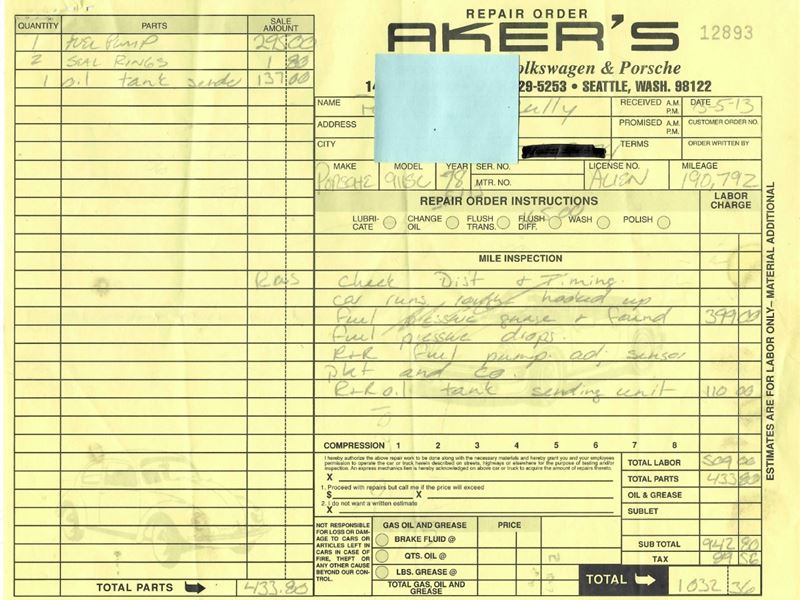 REPAIR ORDER
AKER'S
12893
olkswagen & Porsche
14
29-5253 • SEATTLE, WASH. 98122
QUANTITY PARTS SALE AMOUNT
1 FUEL PUMP 295 00
2 SEAL RINGS 1 80
1 oil tank sender 137 00
NAME ully RECEIVED A.M. P.M. DATE 5-13
ADDRESS PROMISED A.M. P.M. CUSTOMER ORDER NO.
CITY TERMS ORDER WRITTEN BY
MAKE MODEL YEAR SER. NO. LICENSE NO. MILEAGE
PORSCHE 911SC 78 MTR. NO. ALIEN 190,792
REPAIR ORDER INSTRUCTIONS
LABOR CHARGE
LUBRI-CATE CHANGE OIL FLUSH TRANS. FLUSH DIFF. WASH POLISH
MILE INSPECTION
check Dist + Timing.
car runs rough hooked up
fuel pressure guage + found 399 00
fuel pressure drops.
R+R fuel pump. adj sensor
and co.
R+R oil tank sending unit 110 00
ESTIMATES ARE FOR LABOR ONLY– MATERIAL ADDITIONAL
COMPRESSION 1 2 3 4 5 6 7 8
I hereby authorize the above repair work to be done along with the necessary materials and hereby grant you and your employees
permission to operate the car or truck herein described on streets, highways or elsewhere for the purpose of testing and/or
inspection. An express mechanics lien is hereby acknowledged on above car or truck to acquire the amount of repairs thereto.
X
1. Proceed with repairs but call me if the price will exceed
$ X
2. I do not want a written estimate
X
TOTAL LABOR 509 00
TOTAL PARTS 433 80
OIL & GREASE
SUBLET
SUB TOTAL 942 80
TAX 89 56
TOTAL 1032 36
NOT RESPONSIBLE
FOR LOSS OR DAM-
AGE TO CARS OR
ARTICLES LEFT IN
CARS IN CASE OF
FIRE, THEFT OR
ANY OTHER CAUSE
BEYOND OUR CON-
TROL.
GAS OIL AND GREASE PRICE
BRAKE FLUID @
QTS. OIL @
LBS. GREASE @
TOTAL GAS, OIL AND GREASE
TOTAL PARTS 433.80